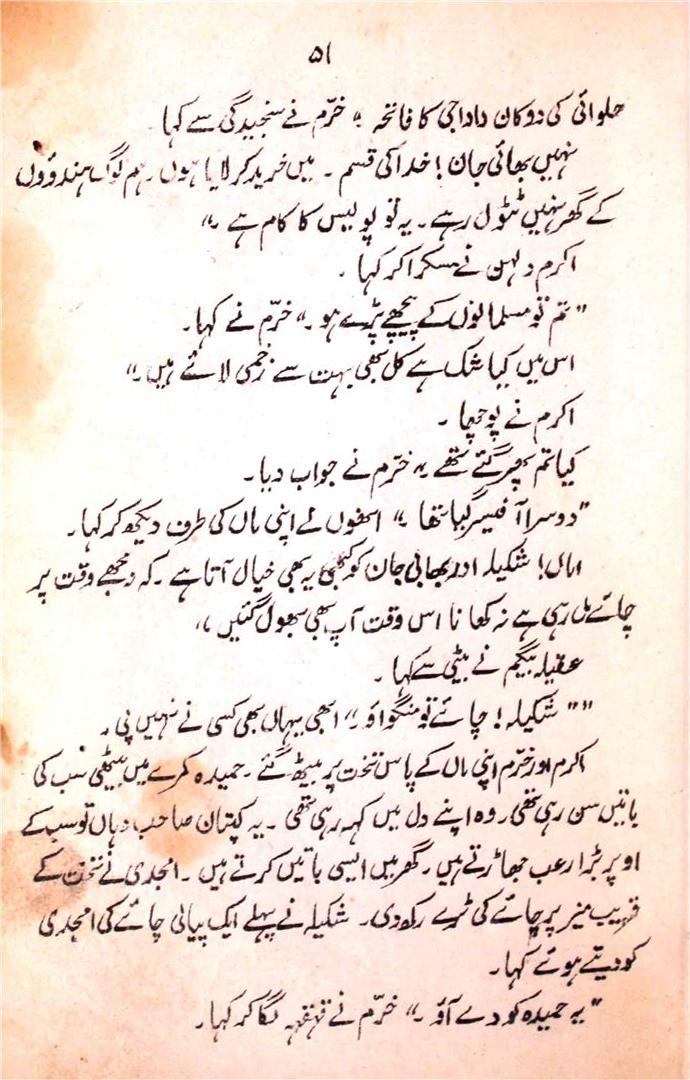 ۵۱
حلوائی کی دوکان داداجی کا فاتحہ “ خرّم نے سنجیدگی سے کہا۔
نہیں بھائی جان! خدا کی قسم ۔ میں خرید کر لایا ہوں ۔ ہم لوگ ہندوؤں
کے گھر نہیں ٹٹول رہے ۔ یہ تو پولیس کا کام ہے ۔“
اکرم دلہن نے مسکرا کر کہا ۔
”تم تو مسلمانوں کے پیچھے پڑے ہو ۔“ خرّم نے کہا۔
اس میں کیا شک ہے کل بھی بہت سے زخمی لائے ہیں ۔“
اکرم نے پوچھا ۔
کیا تم پھر گئے تھے ۔“ خرّم نے جواب دیا۔
”دوسرا آفیسر گیا تھا ۔“ انھوں نے اپنی ماں کی طرف دیکھ کر کہا۔
اماں! شکیلہ اور بھابی جان کو کبھی یہ بھی خیال آتا ہے ۔ کہ مجھے وقت پر
چائے مل رہی ہے نہ کھانا اس وقت آپ بھی بھول گئیں ،“
عقیلہ بیگم نے بیٹی سے کہا ۔
”” شکیلہ! چائے تو منگواؤ ۔“ ابھی یہاں بھی کسی نے نہیں پی ۔
اکرم اور خرّم اپنی ماں کے پاس تخت پر بیٹھ گئے ۔ حمیدہ کمرے میں بیٹھی سب کی
باتیں سن رہی تھی ۔ وہ اپنے دل میں کہہ رہی تھی ۔ یہ کپتان صاحب وہاں تو سب کے
اوپر بڑا رعب جھاڑتے ہیں ۔ گھر میں ایسی باتیں کرتے ہیں ۔ امجدی نے تخت کے
قریب میز پر چائے کی ٹرے رکھ دی۔ شکیلہ نے پہلے ایک پیالی چائے کی امجدی
کو دیتے ہوئے کہا۔
”یہ حمیدہ کو دے آؤ ۔“ خرّم نے قہقہہ لگا کر کہا ۔